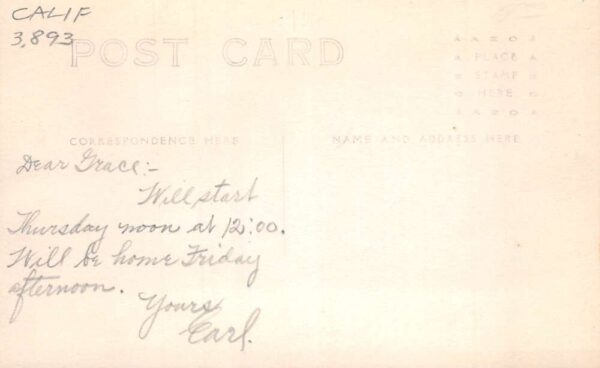 CALIF
3,893
POST CARD
AZOA
A PLACE A
Z STAMP Z
O HERE O
AZOA
CORRESPONDENCE HERE
NAME AND ADDRESS HERE
Dear Grace:-
Will start
Thursday noon at 12:00.
Will be home Friday
afternoon.
Yours
Earl.